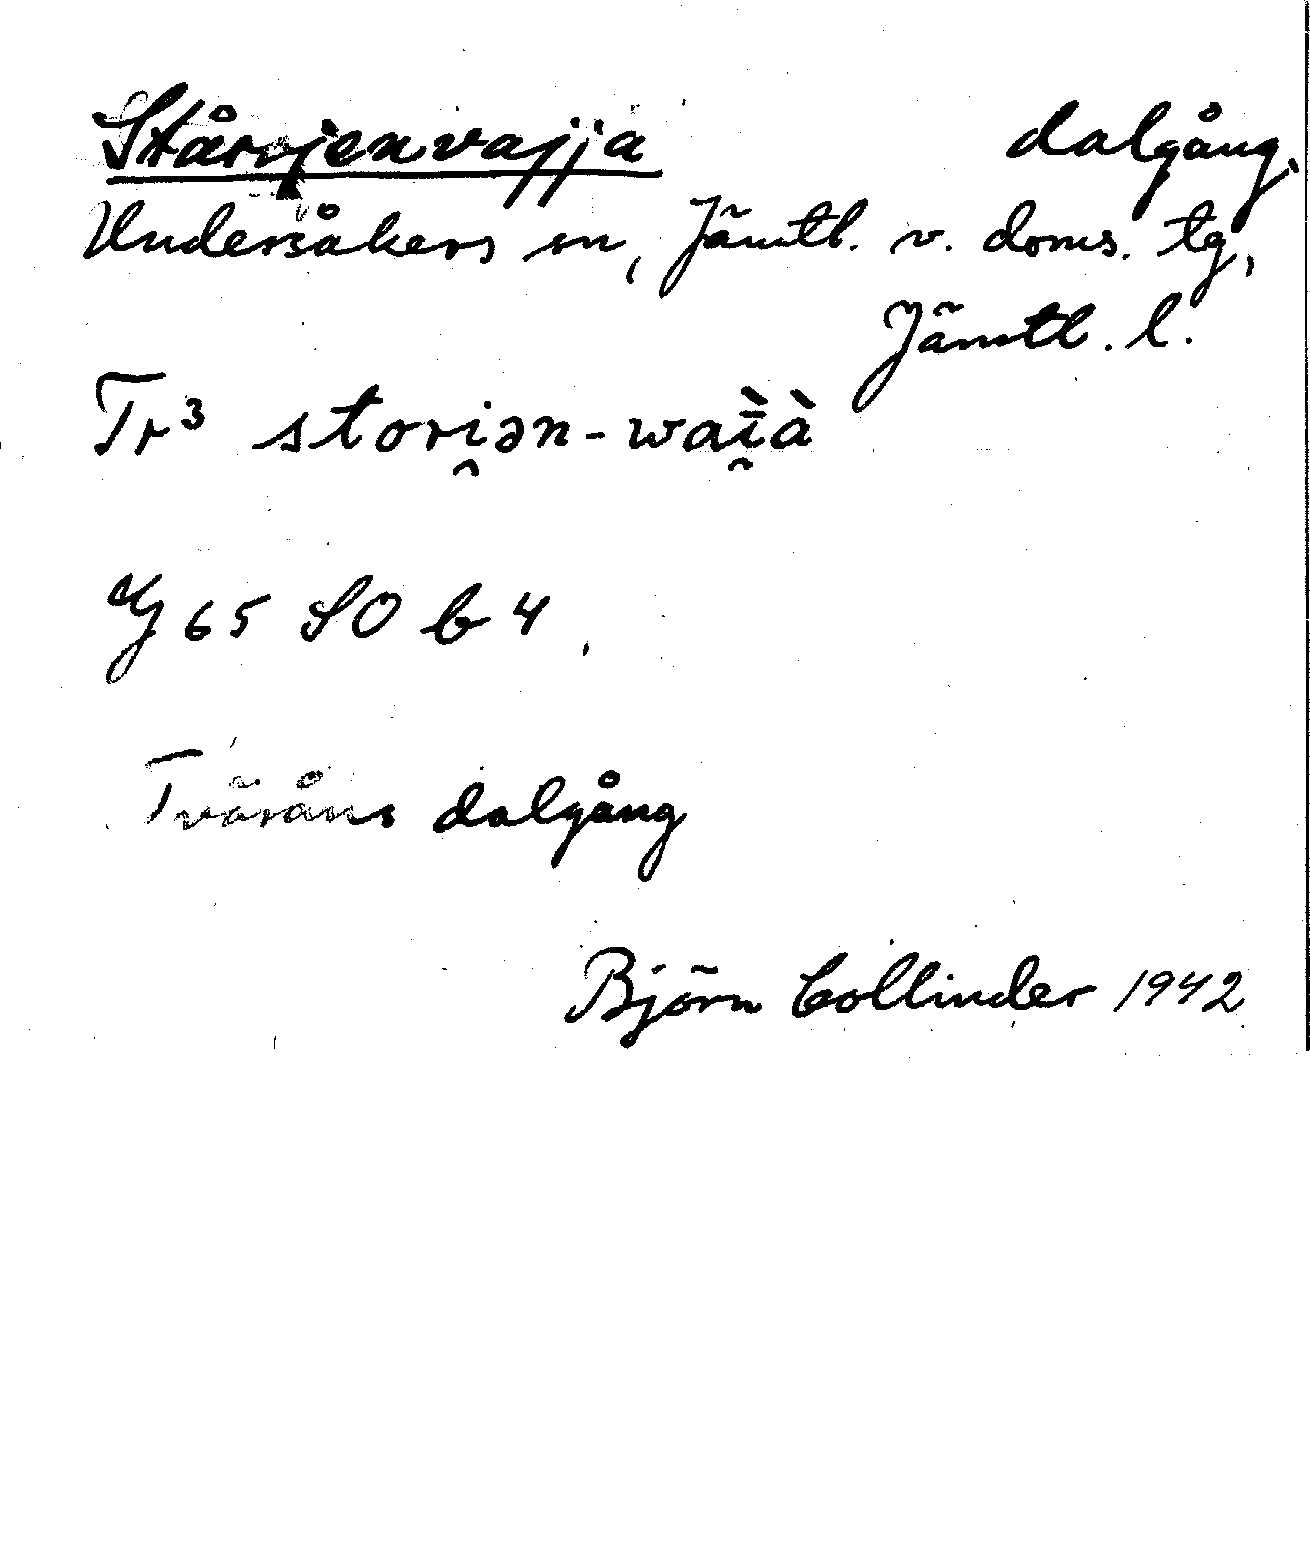 Stårjenvajja dalgång,
Undersåkers sn, Jämtl. v. doms. tg,
Jämtl. l.
Tr³ stori̯ən-waī̯̀à
G 65 SO b 4
Tvåråns dalgång
Björn Collinder 1942